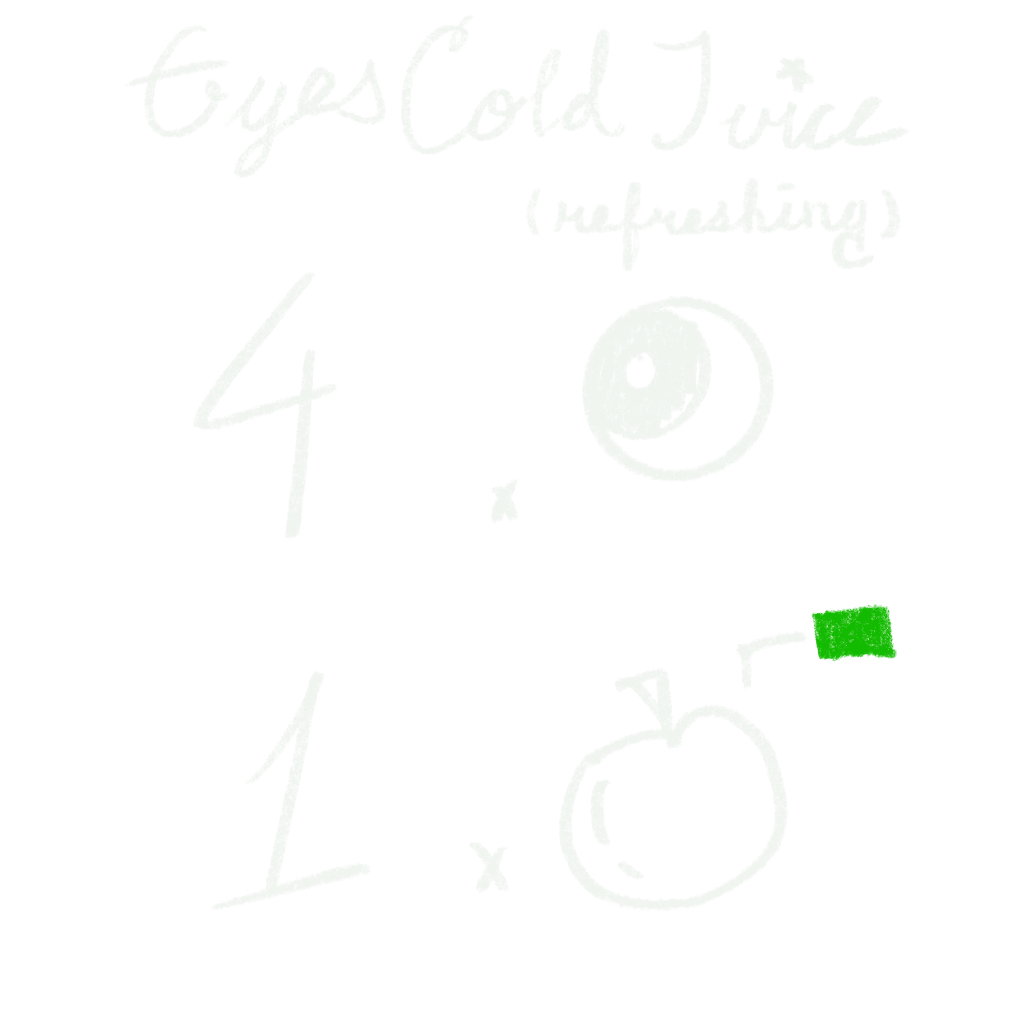 Eyes Cold Juice
(refreshing)
4 x
1 x